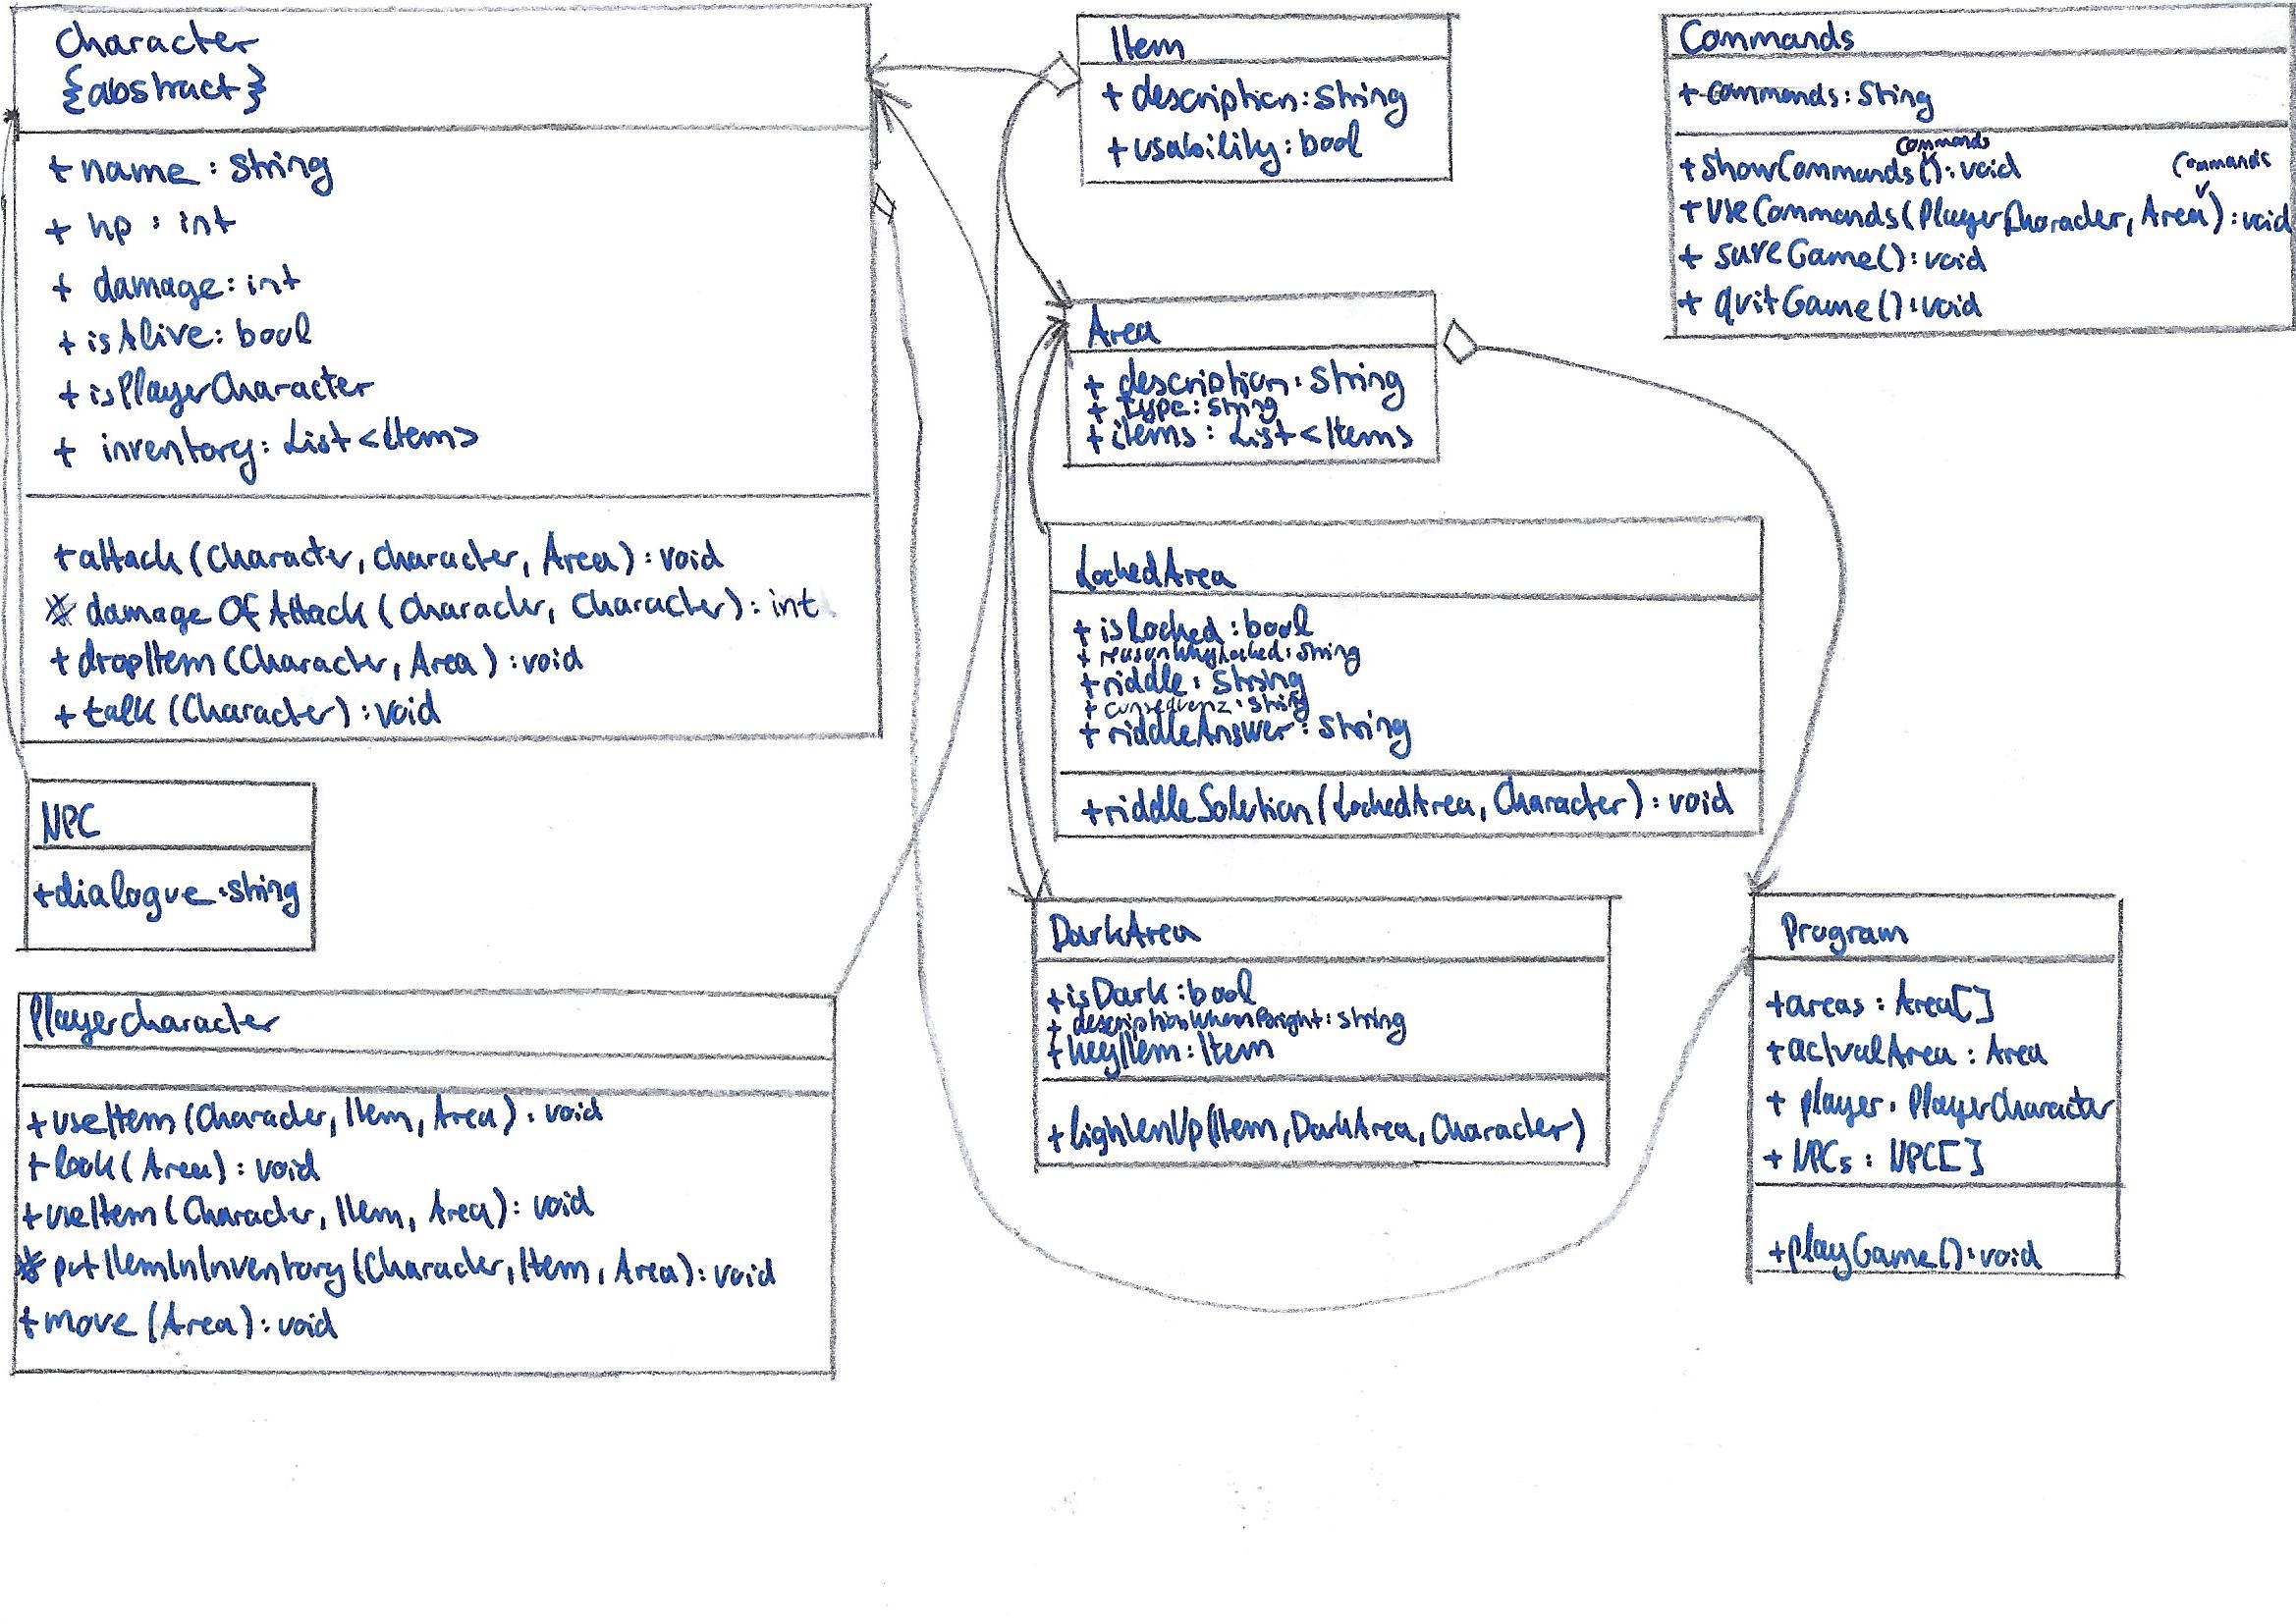 Character
{abstract}
+ name : String
+ hp : int
+ damage : int
+ isAlive : bool
+ isPlayerCharacter
+ inventory : List <Items>
+ attack (Character, Character, Area) : void
# damageOfAttack (Character, Character) : int
+ dropItem (Character, Area) : void
+ talk (Character) : void
NPC
+ dialogue : String
PlayerCharacter
+ useItem (Character, Item, Area) : void
+ look (Area) : void
+ useItem (Character, Item, Area) : void
# putItemInInventory (Character, Item, Area) : void
+ move (Area) : void
Item
+ description : String
+ usability : bool
Area
+ description : String
+ type : String
+ items : List <Items>
LockedArea
+ isLocked : bool
+ reasonWhyLocked : String
+ riddle : String
+ consequenz : String
+ riddleAnswer : String
+ riddleSolution (LockedArea, Character) : void
DarkArea
+ isDark : bool
+ descriptionWhenBright : String
+ keyItem : Item
+ lightenUp (Item, DarkArea, Character)
Commands
+ commands : String
Commands
+ showCommands () : void
Commands
+ useCommands (PlayerCharacter, Area) : void
+ saveGame () : void
+ quitGame () : void
Program
+ areas : Area []
+ actualArea : Area
+ player : PlayerCharacter
+ NPCs : NPC []
+ playGame () : void